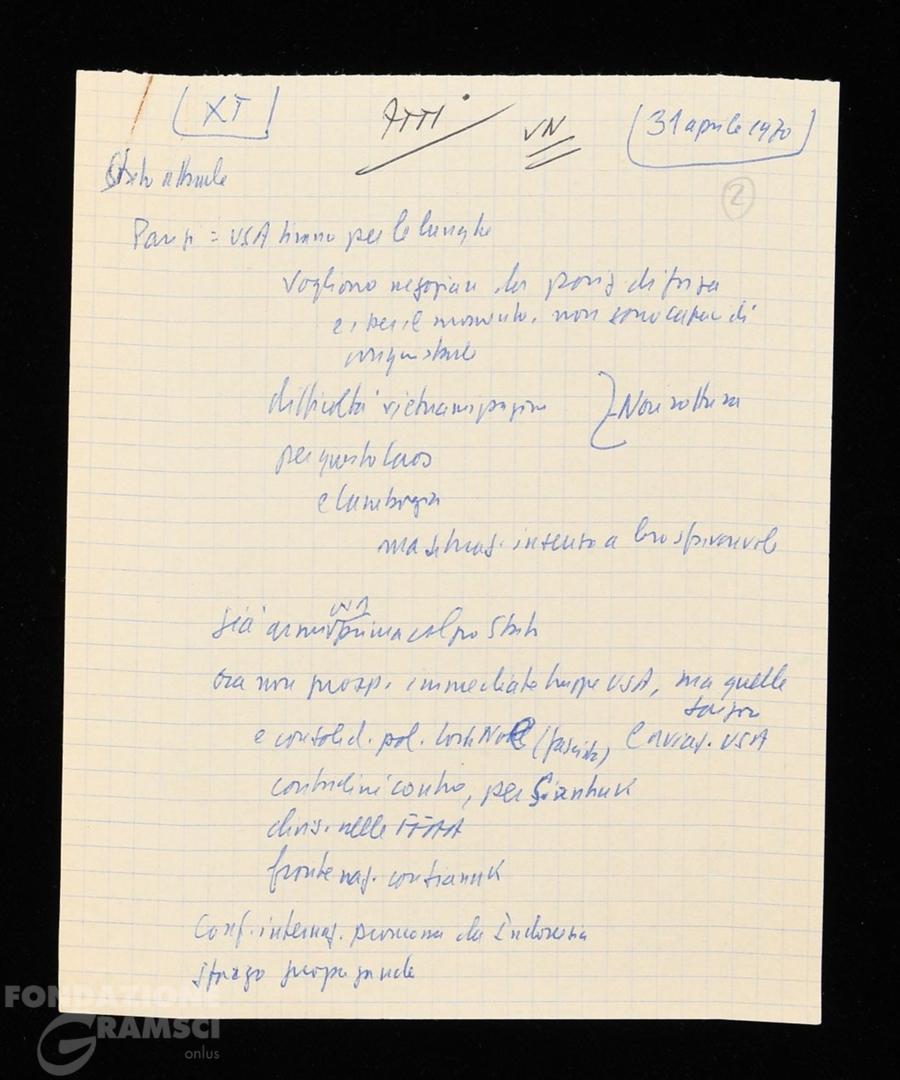 (XT)
ATTI
VN
(31 aprile 1970)
2
Stato attuale
Parigi = USA tirano per le lunghe
vogliono negoziare da posiz di forza
e, per il momento, non sono capaci di
conquistarle
difficoltà vietnamizzazione } Non rottura
per questo Laos
e Cambogia
ma situaz. intento a loro sfavorevole
USA
già armi prima colpo Stato
ora non prosp. immediate truppe USA, ma quelle
Saigon
e consolid. pol. Lon Nol (fascista) e aviaz. USA
contadini contro, per Sianhuk
divis. nelle FFAA
fronte naz. con Sianuk
Conf. internaz. promossa da Indonesia
sforzo propaganda
FONDAZIONE
GRAMSCI
onlus